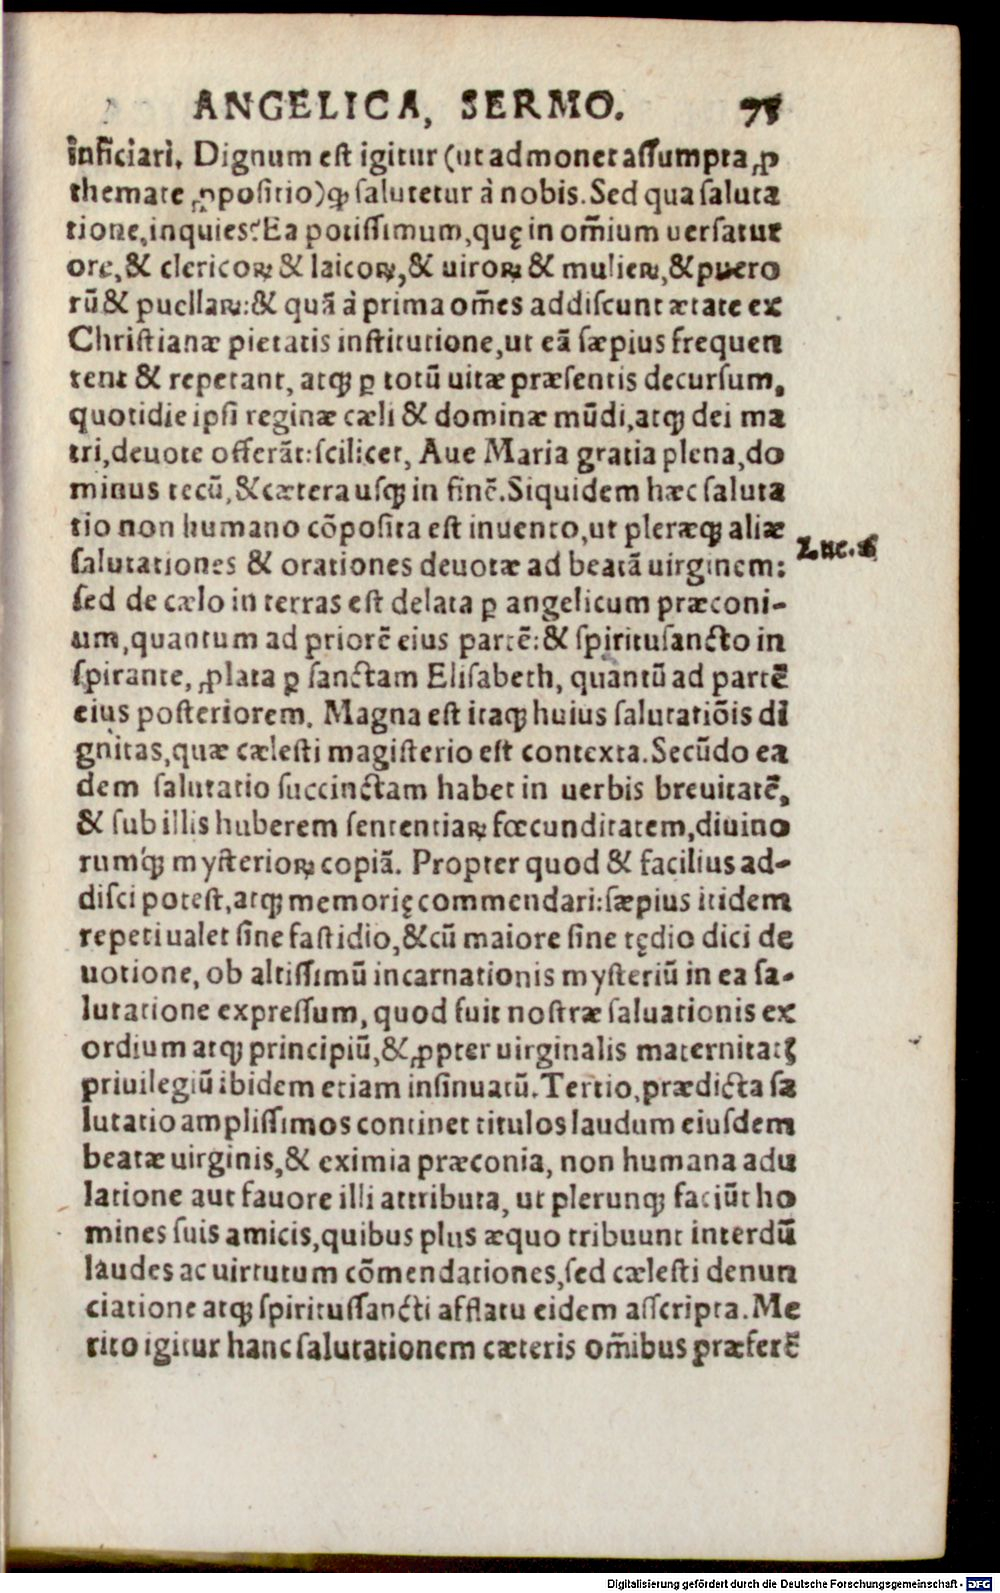 ANGELICA, SERMO. 75
inficiari. Dignum est igitur (ut admonet assumpta ꝓ
themate ꝓpositio) ꝙ salutetur à nobis. Sed qua saluta
tione, inquies? Ea potissimum, quę in om̃ium uersatur
ore, & clericoꝝ & laicoꝝ, & uiroꝝ & mulieꝝ, & puero
rũ & puellaꝝ: & quã à prima om̃es addiscunt ætate ex
Christianæ pietatis institutione, ut eã sæpius frequen
tent & repetant, atqꝫ ꝑ totũ uitæ præsentis decursum,
quotidie ipsi reginæ cæli & dominæ mũdi, atqꝫ dei ma
tri, deuote offerãt: scilicet, Aue Maria gratia plena, do
minus tecũ, & cætera usqꝫ in finẽ. Siquidem hæc saluta
tio non humano cõposita est inuento, ut pleræqꝫ aliæ
Luc. 1
salutationes & orationes deuotæ ad beatã uirginem:
sed de cælo in terras est delata ꝑ angelicum præconi-
um, quantum ad priorẽ eius partẽ: & spiritusancto in
spirante, ꝓlata ꝑ sanctam Elisabeth, quantũ ad partẽ
eius posteriorem. Magna est itaqꝫ huius salutatiõis di
gnitas, quæ cælesti magisterio est contexta. Secũdo ea
dem salutatio succinctam habet in uerbis breuitatẽ,
& sub illis huberem sententiaꝝ fœcunditatem, diuino
rumqꝫ mysterioꝝ copiã. Propter quod & facilius ad-
disci potest, atqꝫ memorię commendari: sæpius itidem
repeti ualet sine fastidio, & cũ maiore sine tędio dici de
uotione, ob altissimũ incarnationis mysteriũ in ea sa-
lutatione expressum, quod fuit nostræ saluationis ex
ordium atqꝫ principiũ, & ꝓpter uirginalis maternitatꝭ
priuilegiũ ibidem etiam insinuatũ. Tertio, prædicta sa
lutatio amplissimos continet titulos laudum eiusdem
beatæ uirginis, & eximia præconia, non humana adu
latione aut fauore illi attributa, ut plerunqꝫ faciũt ho
mines suis amicis, quibus plus æquo tribuunt interdũ
laudes ac uirtutum cõmendationes, sed cælesti denun
ciatione atqꝫ spiritussancti afflatu eidem asscripta. Me
rito igitur hanc salutationem cæteris om̃ibus præferẽ
Digitalisierung gefördert durch die Deutsche Forschungsgemeinschaft - DFG